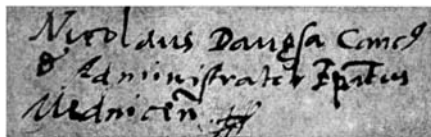 Nicolaus Daugsa Canc9
& Administrator Epatus
Mednicen